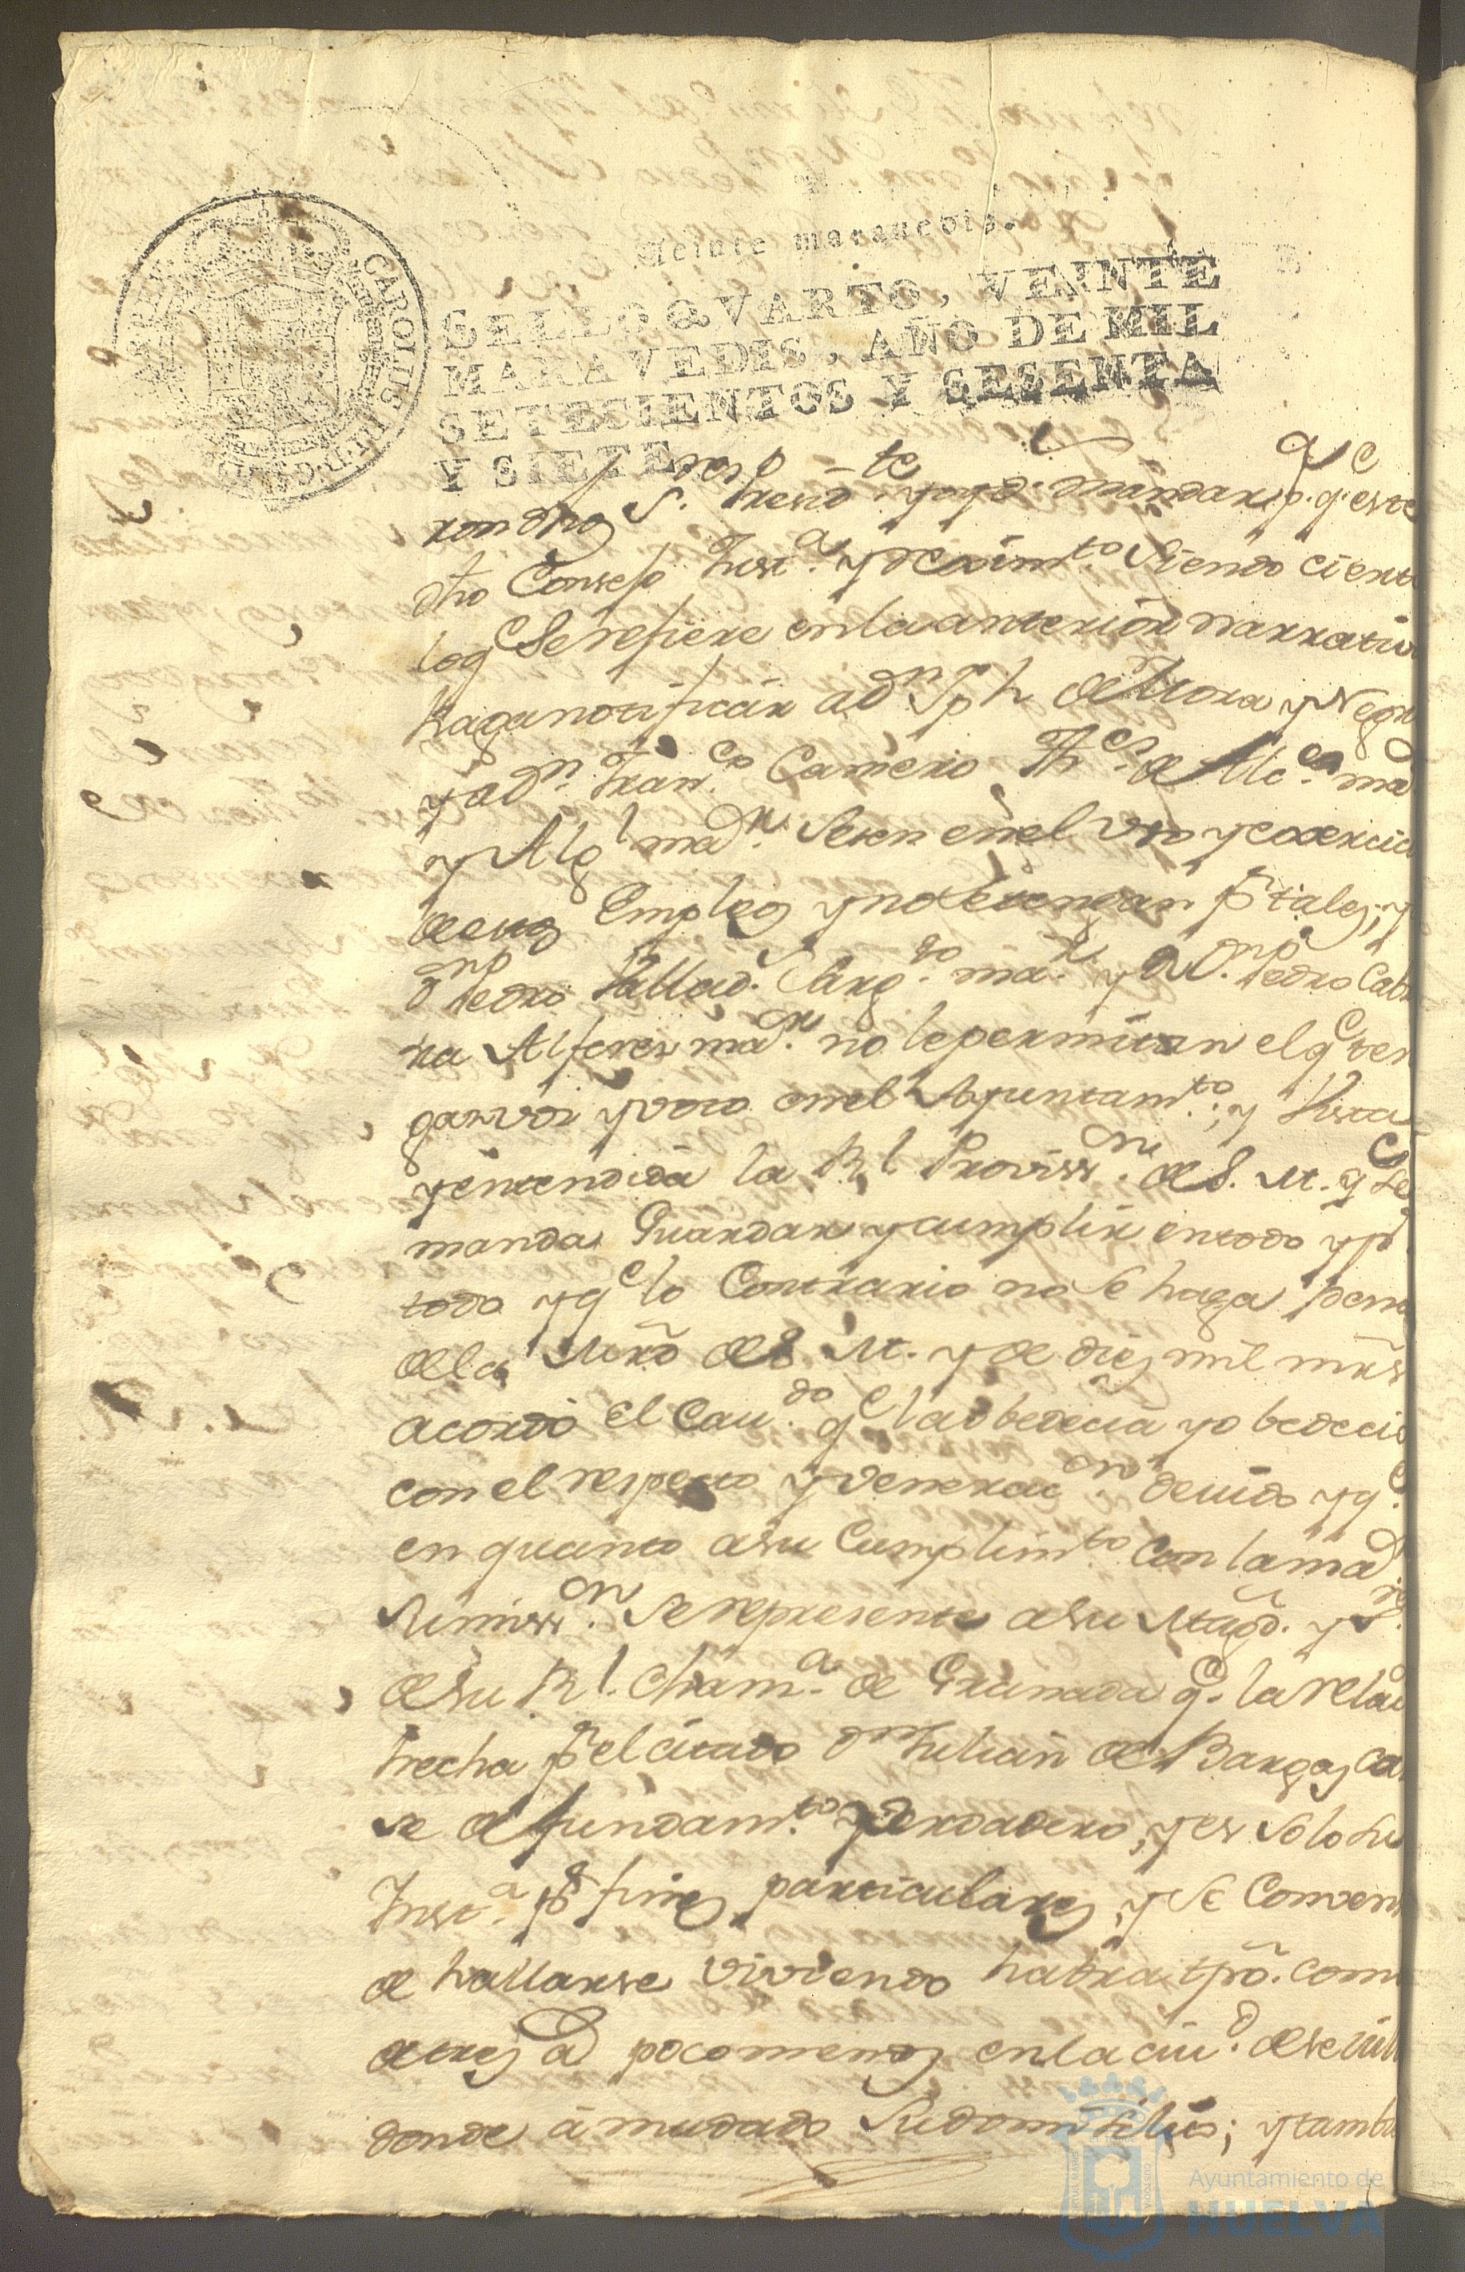 Veinte maravedis.
SELLO QVARTO, VEINTE
MARAVEDIS, AÑO DE MIL
SETECIENTOS Y SESENTA
Y SIETE.
CAROLUS III D G
ron dhos S. Presid.te y oyd. mandar p. q. este
dho Consejo Just.a y Rexim.to Siendo cierto
lo q.e Se refiere en la anterior narrativa
haga notificar a d.n Jph de Mora y Negro
y a d.n Fran.co Camero Th.e de Alc.e ma
y Alg.l ma.r Sesen en el vso y exercicio
de sus Empleos y no le tengan p.r tales; y
d.n Pedro Vallad. Sarg.to ma.r y a D.n Pedro Cabr
ra Alferes ma.r no le permitan el q.e ten
gan vos y voto en el Ayuntam.to; y Vista
y entendida la R.l Proviss.on de S. M. q.e Se
manda Guardar y cumplir en todo y p.r
todo y q.e lo Contrario no Se haga pena
de la Mrd de S. M. y de dies mil mrs
acordó el Cau.do q.e la obedecia y obedecio
con el respecto y venerac.on deuido y q.e
en quanto a su Cumplim.to Con la ma.r
Sumiss.on Se represente a su Magd. y
de su R.l Cham.a de Granada q.e la relac
hecha p.r el citado d.n Julian de Bargas ca
se de fundam.to Verdadero, y es Solo su
Inst.a p.r fines particulares, y Se Conven
de hallarse viviendo habra tpo. com
de tres a.s poco menos en la ciu.d de sevill
donde a mudado Su domicilio; y tambi
Ayuntamiento de
HUELVA